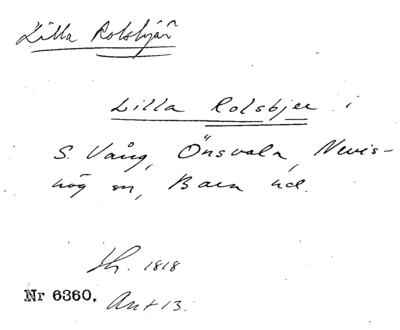 Lilla Rolsbjär
Lilla Rolsbjer i
S. Vång, Önsvala, Nevis-
hög sn, Bara hd.
Sk. 1818
Nr 6360. Ant 13.